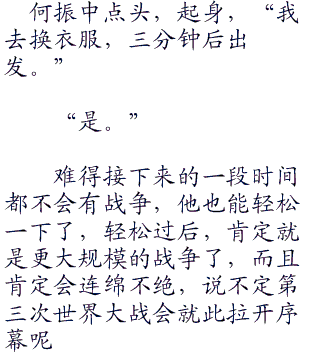 何振中点头，起身，“我
去换衣服，三分钟后出
发。”
“是。”
难得接下来的一段时间
都不会有战争，他也能轻松
一下了，轻松过后，肯定就
是更大规模的战争了，而且
肯定会连绵不绝，说不定第
三次世界大战会就此拉开序
幕呢